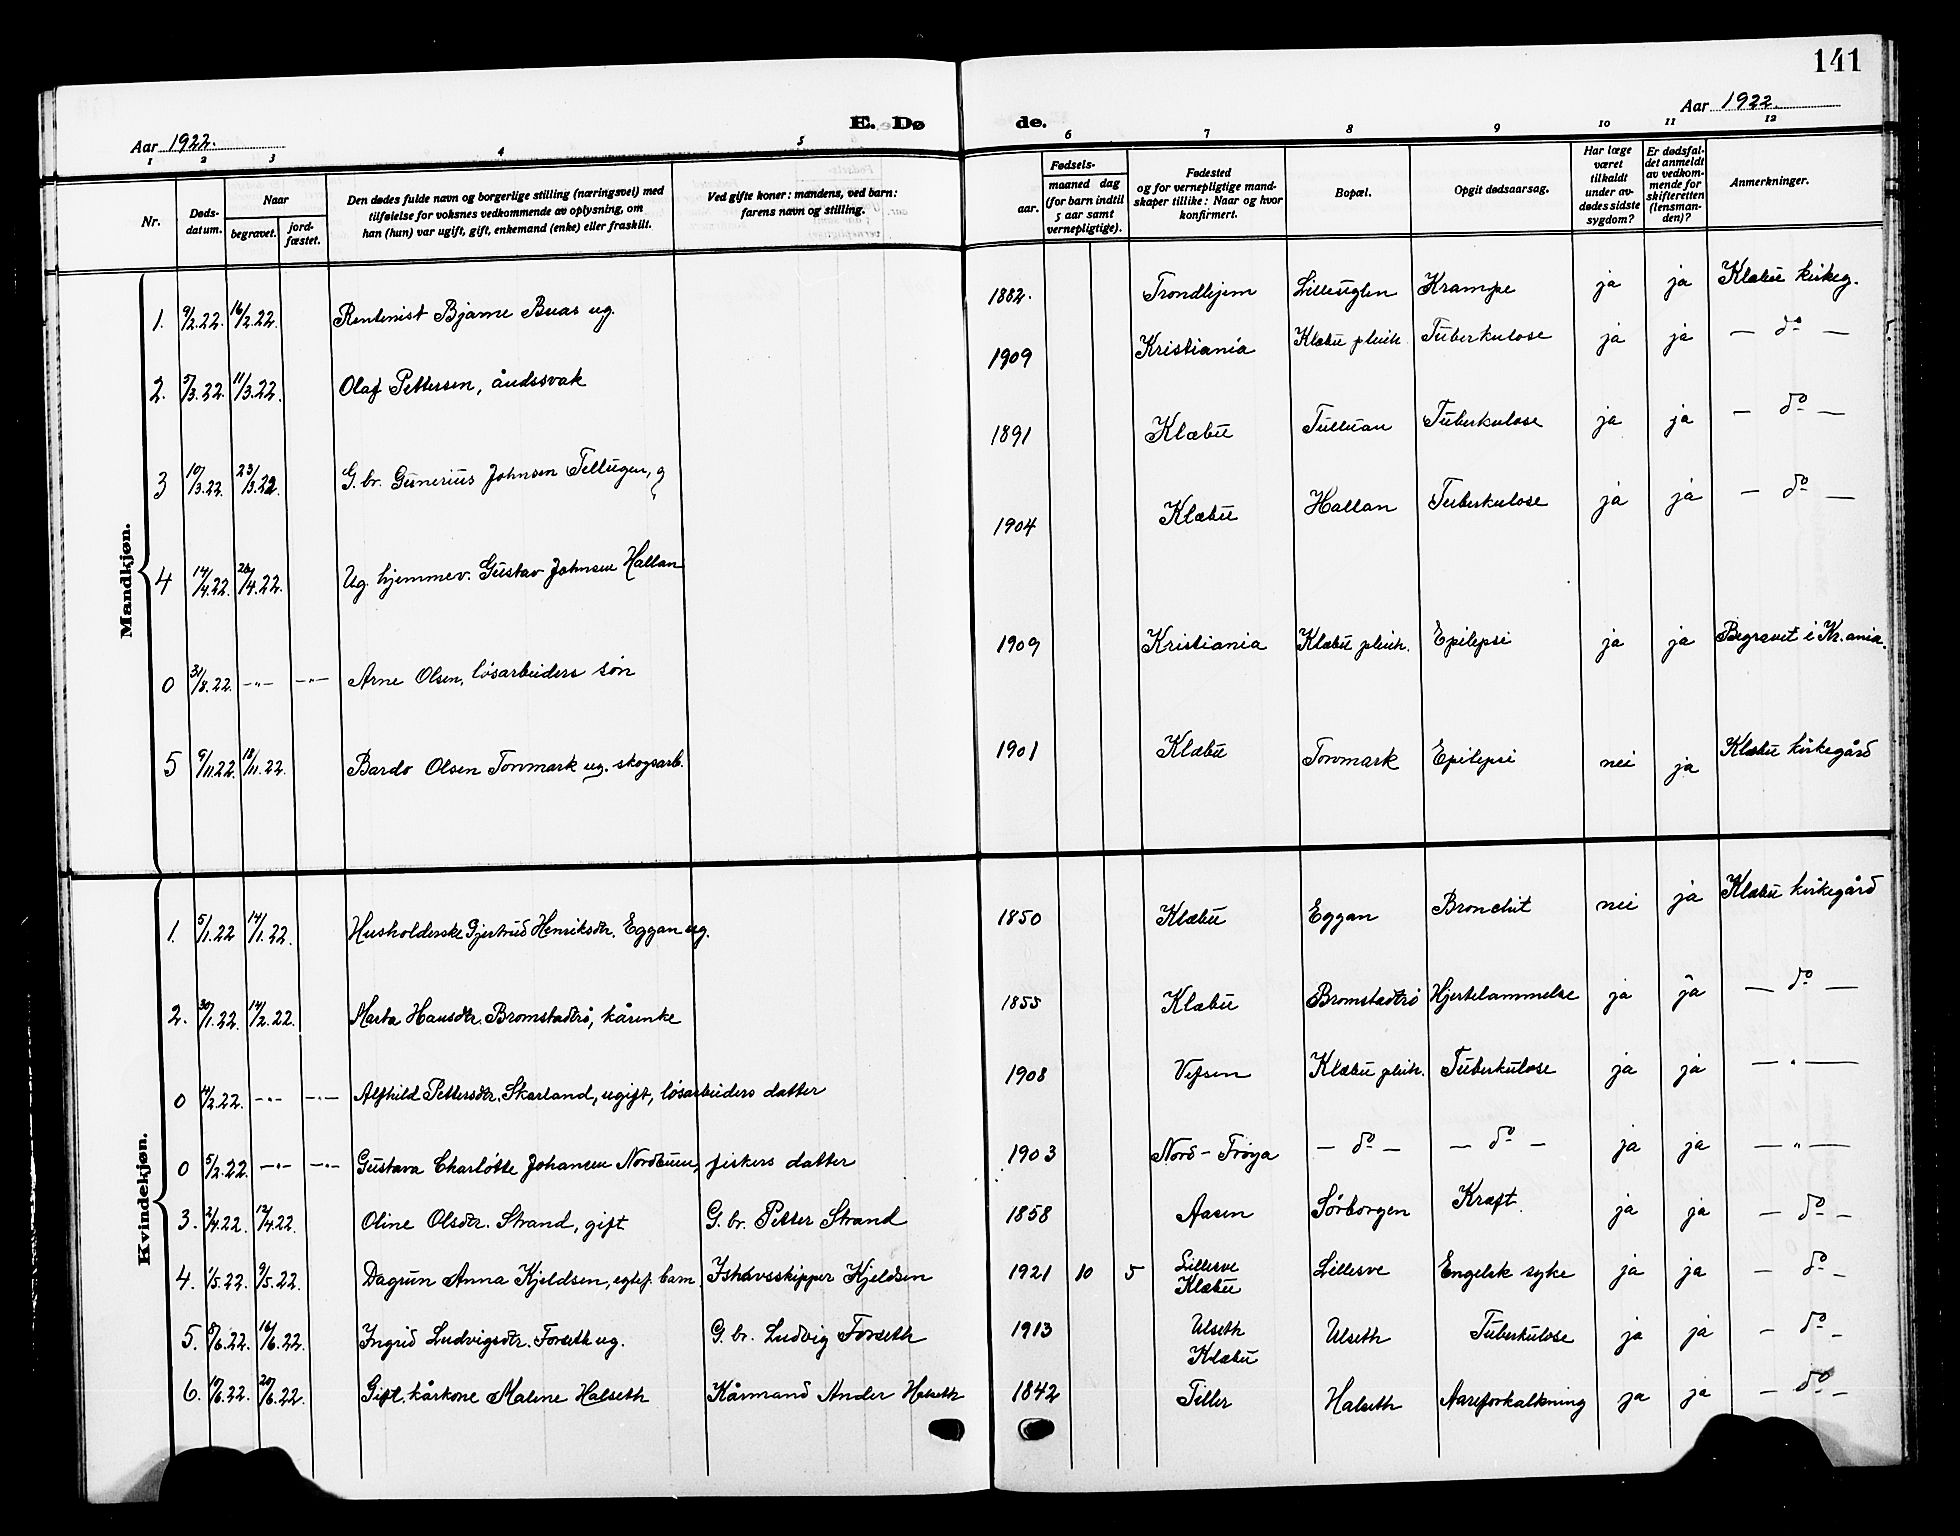 141
Aar 1922.
E. Dø
de.
Aar 1922.
1 2 3 4 5 6 7 8 9 10 11 12
Nr.
Døds-
datum.
Naar
begravet.
jord-
fæstet.
Den dødes fulde navn og borgerlige stilling (næringsvei) med
tilføielse for voksnes vedkommende av oplysning, om
han (hun) var ugift, gift, enkemand (enke) eller fraskilt.
Ved gifte koner: mandens, ved barn:
farens navn og stilling.
Fødsels-
aar.
maaned dag
(for barn indtil
5 aar samt
vernepligtige).
Fødested
og for vernepligtige mand-
skaper tillike: Naar og hvor
konfirmert.
Bopæl.
Opgit dødsaarsag.
Har læge
været
tilkaldt
under av-
dødes sidste
sygdom?
Er dødsfal-
det anmeldt
av vedkom-
mende for
skifteretten
(lensman-
den)?
Anmerkninger.
Mandkjøn.
1. 9/2.22. 16/2.22. Rentenist Bjarne Buas ug. 1882. Trondhjem Lilleuglen Krampe ja ja Klæbu kirkeg.
2. 5/3.22. 11/3.22. Olaf Pettersen, åndssvak 1909 Kristiania Klæbu pleieh. Tuberkulose ja ja — do —
3 10/3.22. 23/3.22. G. br. Gunerius Johnsen Tellugen, g 1891 Klæbu Tulluan Tuberkulose ja ja — do —
4 14/4.22. 26/4.22. Ug. hjemmev. Gustav Johnsen Hallan 1904 Klæbu Hallan Tuberkulose ja ja — do —
0 31/8.22. —"— —"— Arne Olsen, løsarbeiders søn 1909 Kristiania Klæbu pleieh. Epilepsi ja ja Begravet i Kr.ania.
5 9/11.22. 18/11.22. Bardo Olsen Tonmark ug. skogsarb. 1901 Klæbu Tonmark Epilepsi nei ja Klæbu kirkegård
Kvindekjøn.
1. 5/1.22 14/1.22. Husholderske Gjertrud Henriksdtr. Eggan ug. 1850 Klæbu Eggan Bronchit nei ja Klæbu kirkegård
2. 30/1.22. 14/2.22. Marta Hansdtr. Bromstadtrø, kårenke 1855 Klæbu Bromstadtrø Hjertelammelse ja ja — do —
0 4/2.22. —"— —"— Alfhild Pettersdtr. Skarland, ugift, løsarbeiders datter 1908 Vefsen Klæbu pleieh. Tuberkulose ja ja — " —
0 5/2.22. —"— —"— Gustava Charlotte Johansen Nordbuen, fiskers datter 1903 Nord-Frøya — do — — do — ja ja — " —
3. 2/4.22. 12/4.22. Oline Olsdtr. Strand, gift G. br. Petter Strand 1858 Aasen Sørborgen Kræft. ja ja — do —
4. 1/5.22. 9/5.22. Dagrun Anna Kjeldsen, egtef. barn Ishavsskipper Kjeldsen 1921 10 5 Lillesve
Klæbu Lillesve Engelsk syke ja ja — do —
5. 8/6.22. 16/6.22. Ingrid Ludvigsdtr. Forseth ug. G. br. Ludvig Forseth 1913 Ulseth
Klæbu Ulseth Tuberkulose ja ja — do —
6. 17/6.22. 20/6.22. Gift. kårkone Malene Halseth Kårmand Ander Halseth 1842 Tiller Halseth Aareforkalkning ja ja — do —